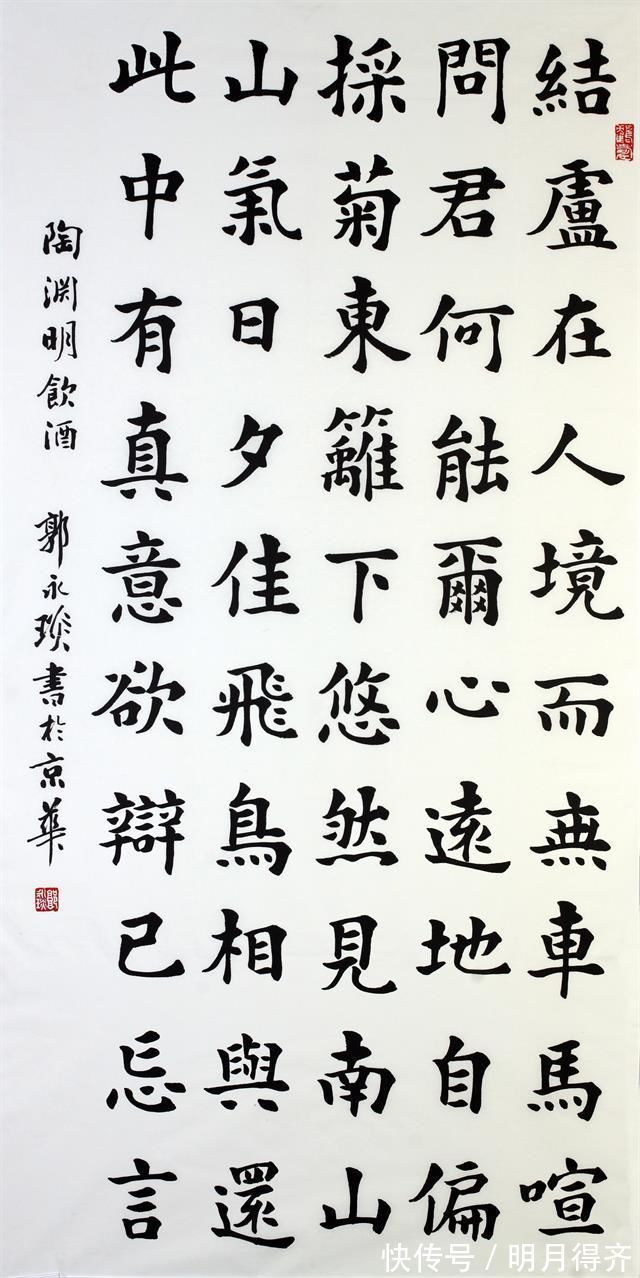 結盧在人境而無車馬喧
問君何能爾心遠地自偏
採菊東籬下悠然見南山
山氣日夕佳飛鳥相與還
此中有真意欲辯已忘言
陶淵明飲酒 郭永琰書於京華
快传号/明月得齐